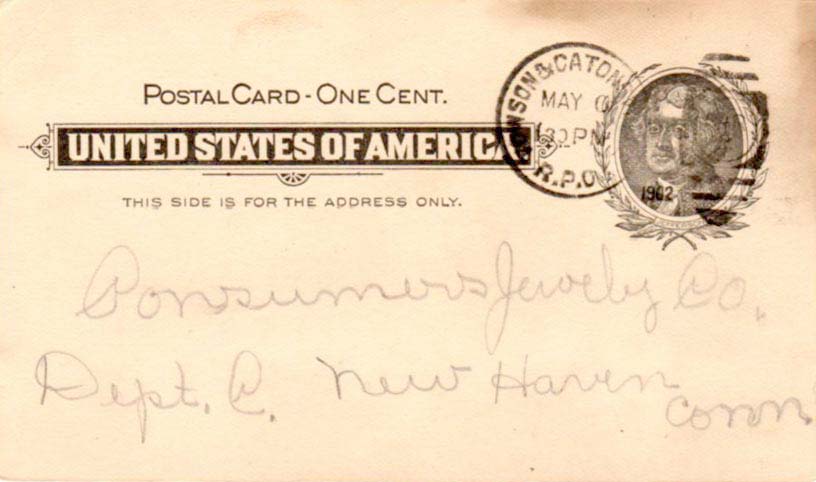 POSTAL CARD - ONE CENT.
UNITED STATES OF AMERICA.
THIS SIDE IS FOR THE ADDRESS ONLY.
NSON & CATON
MAY
PM
R.P.O.
1902
Consumers Jewelry Co.
Dept. C. New Haven
Conn